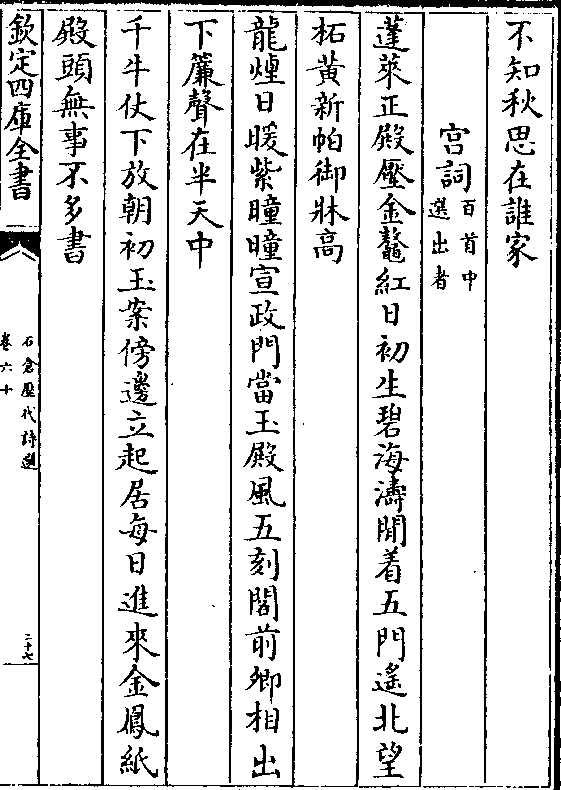 不知秋思在誰家
宫詞百首中選出者
蓬萊正殿壓金鼇紅日初生碧海濤閒着五門遙北望
柘黄新帕御牀高
龍煙日暖紫曈曈宣政門當玉殿風五刻閣前卿相出
下簾聲在半天中
千牛仗下放朝初玉案傍邊立起居每日進來金鳳紙
殿頭無事不多書
欽定四庫全書
石倉歴代詩選
卷六十
二十七